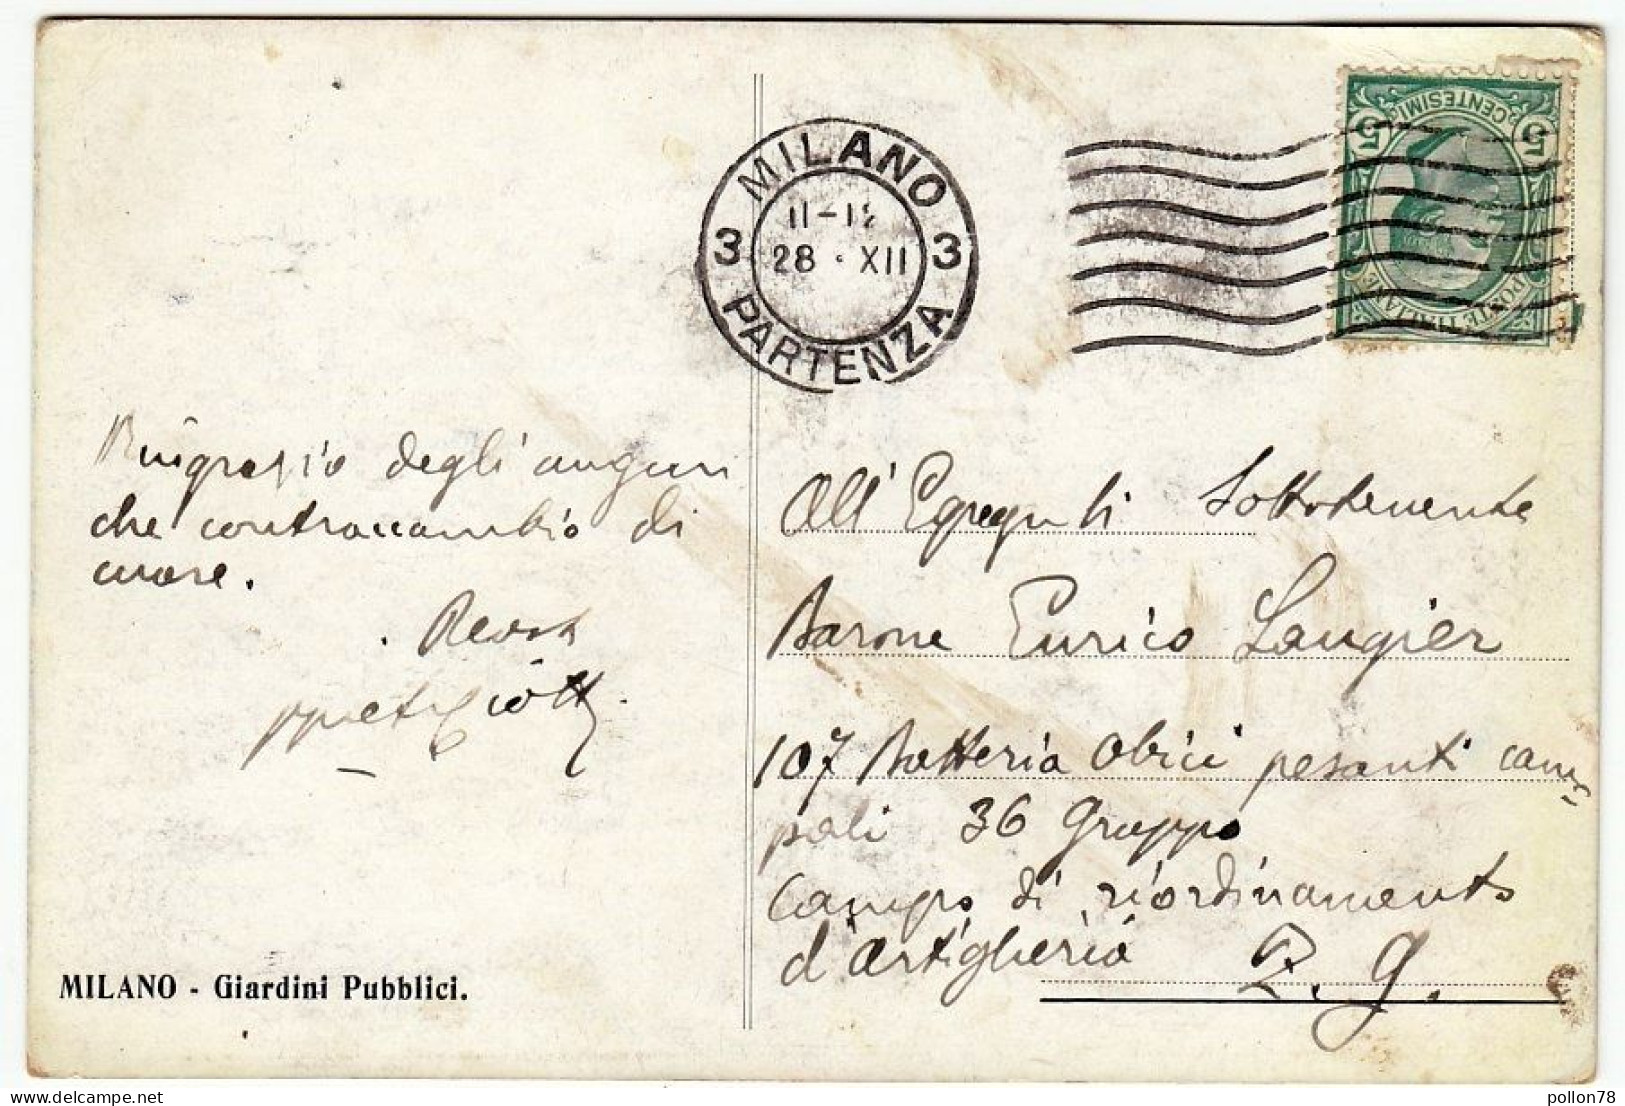 MILANO
3 11-12 3
28 · XII
PARTENZA
5 CENTESIMI 5
POSTE ITALIANE
Ringrazio degli auguri
che contraccambio di
cuore.
All' Sottotenente
Barone Enrico Laugier
107 Batteria Obici pesanti cam-
pali 36 Gruppo
Campo di riordinamento
d'artiglieria Z. G.
MILANO - Giardini Pubblici.
pollon78